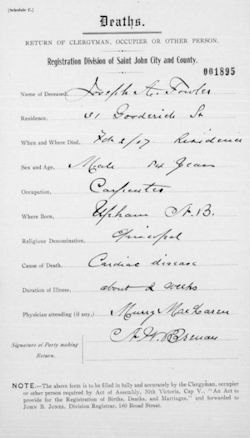 [Schedule C.]
Deaths.
RETURN OF CLERGYMAN, OCCUPIER OR OTHER PERSON.
Registration Division of Saint John City and County.
001895
Name of Deceased, Joseph A. Fowler
Residence, 31 Gooderich St
When and Where Died, Feb 2/07 Residence
Sex and Age, Male Years
Occupation, Carpenter
Where Born, Upham N.B.
Religious Denomination, Episcopal
Cause of Death, Cardiac disease
Duration of Illness, about 2 weeks
Physician attending (if any), Murray MacLaren
Signature of Party making Return. N. W. Brenan
NOTE.—The above form is to be filled in fully and accurately by the Clergyman, occupier
or other person required by Act of Assembly, 50th Victoria, Cap V., "An Act
to provide for the Registration of Births, Deaths, and Marriages," and forwarded to
JOHN B. JONES, Division Registrar, 160 Broad Street.